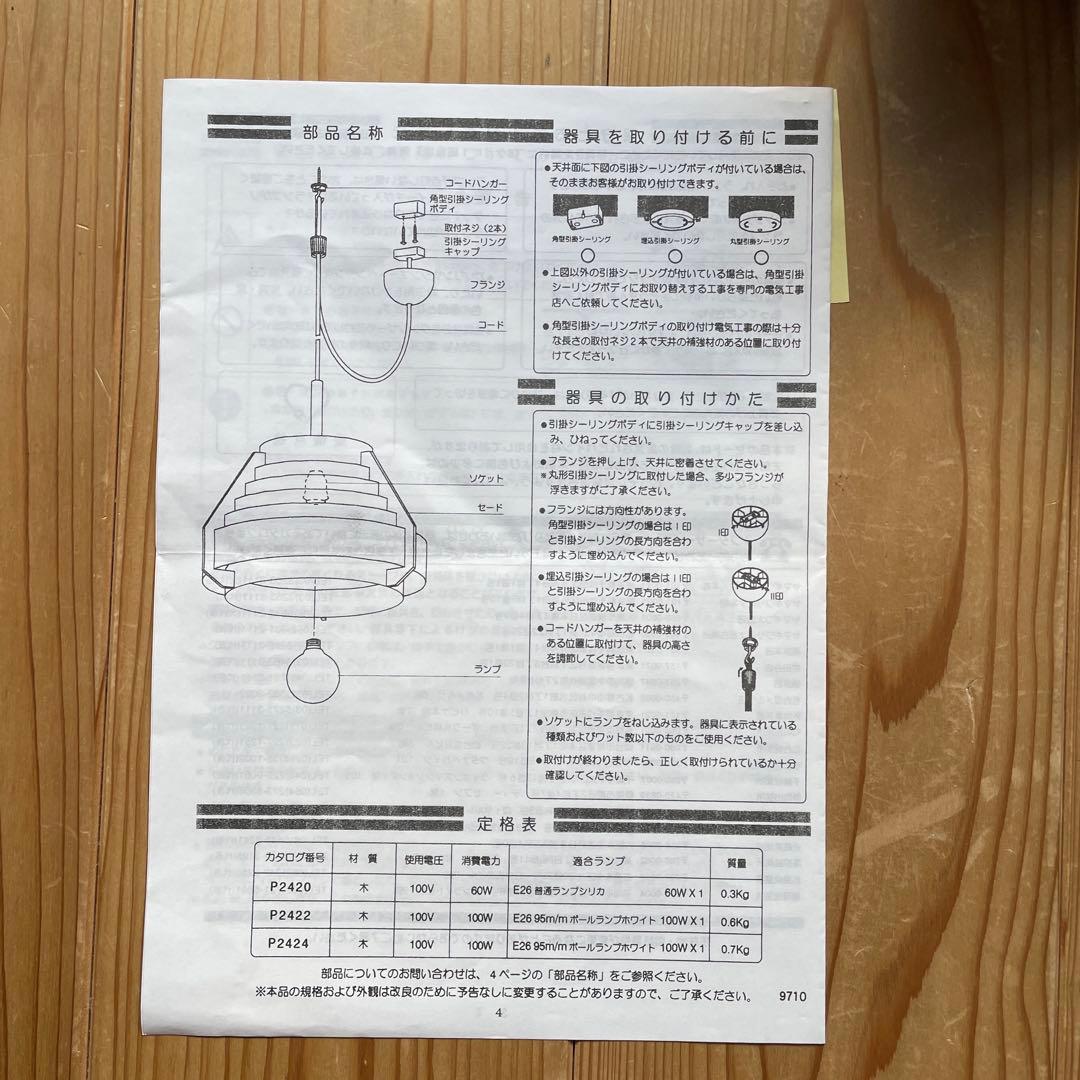 部品名称
コードハンガー
角型引掛シーリング
ボディ
取付ネジ(2本)
引掛シーリング
キャップ
フランジ
コード
ソケット
セード
ランプ
器具を取り付ける前に
●天井面に下図の引掛シーリングボディが付いている場合は、
そのままお客様がお取り付けできます。
角型引掛シーリング 埋込引掛シーリング 丸型引掛シーリング
○ ○ ○
●上図以外の引掛シーリングが付いている場合は、角型引掛
シーリングボディにお取り替えする工事を専門の電気工事
店へご依頼してください。
●角型引掛シーリングボディの取り付け電気工事の際は十分
な長さの取付ネジ2本で天井の補強材のある位置に取り付
けてください。
器具の取り付けかた
●引掛シーリングボディに引掛シーリングキャップを差し込
み、ひねってください。
●フランジを押し上げ、天井に密着させてください。
※丸形引掛シーリングに取付した場合、多少フランジが
浮きますがご了承ください。
●フランジには方向性があります。
角型引掛シーリングの場合はI印
と引掛シーリングの長方向を合わ
すように埋め込んでください。
I印
●埋込引掛シーリングの場合はII印
と引掛シーリングの長方向を合わ
すように埋め込んでください。
II印
●コードハンガーを天井の補強材の
ある位置に取付けて、器具の高さ
を調節してください。
●ソケットにランプをねじ込みます。器具に表示されている
種類およびワット数以下のものをご使用ください。
●取付けが終わりましたら、正しく取付けられているか十分
確認してください。
定格表
カタログ番号 材質 使用電圧 消費電力 適合ランプ 質量
P2420 木 100V 60W E26 普通ランプシリカ 60W X 1 0.3Kg
P2422 木 100V 100W E26 95m/m ボールランプホワイト 100W X 1 0.6Kg
P2424 木 100V 100W E26 95m/m ボールランプホワイト 100W X 1 0.7Kg
部品についてのお問い合わせは、4ページの「部品名称」をご参照ください。
※本品の規格および外観は改良のために予告なしに変更することがありますので、ご了承ください。 9710
4